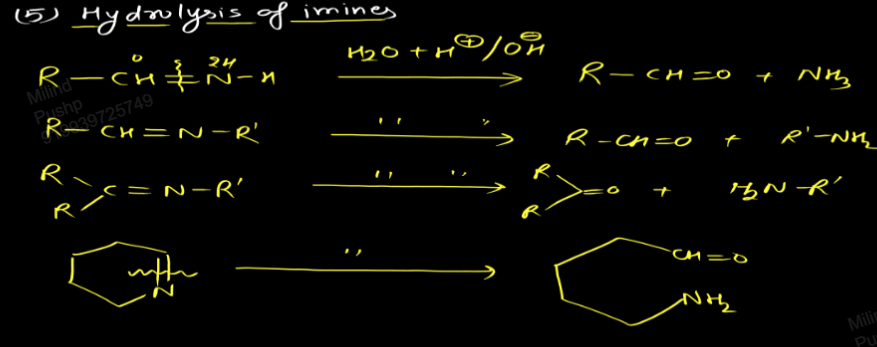 (5) Hydrolysis of imines
R–CH=N–H H2O + H⊕/OH⊖ → R–CH=O + NH3
O 2H
R–CH=N–R' '' '' → R–CH=O + R'–NH2
R R C=N–R' '' '' → R R =O + H2N–R'
N '' → CH=O NH2
Milind
Pushp
939725749
Mili
Pu